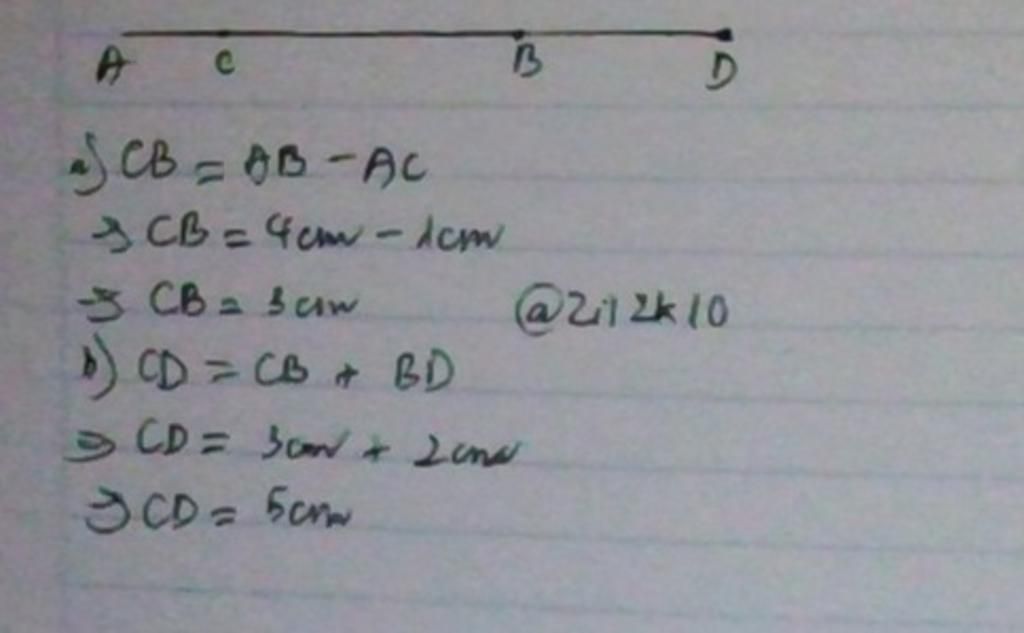 A C B D
a) CB = AB - AC
⇒ CB = 4cm - 1cm
⇒ CB = 3cm @Zi12k10
b) CD = CB + BD
⇒ CD = 3cm + 2cm
⇒ CD = 5cm